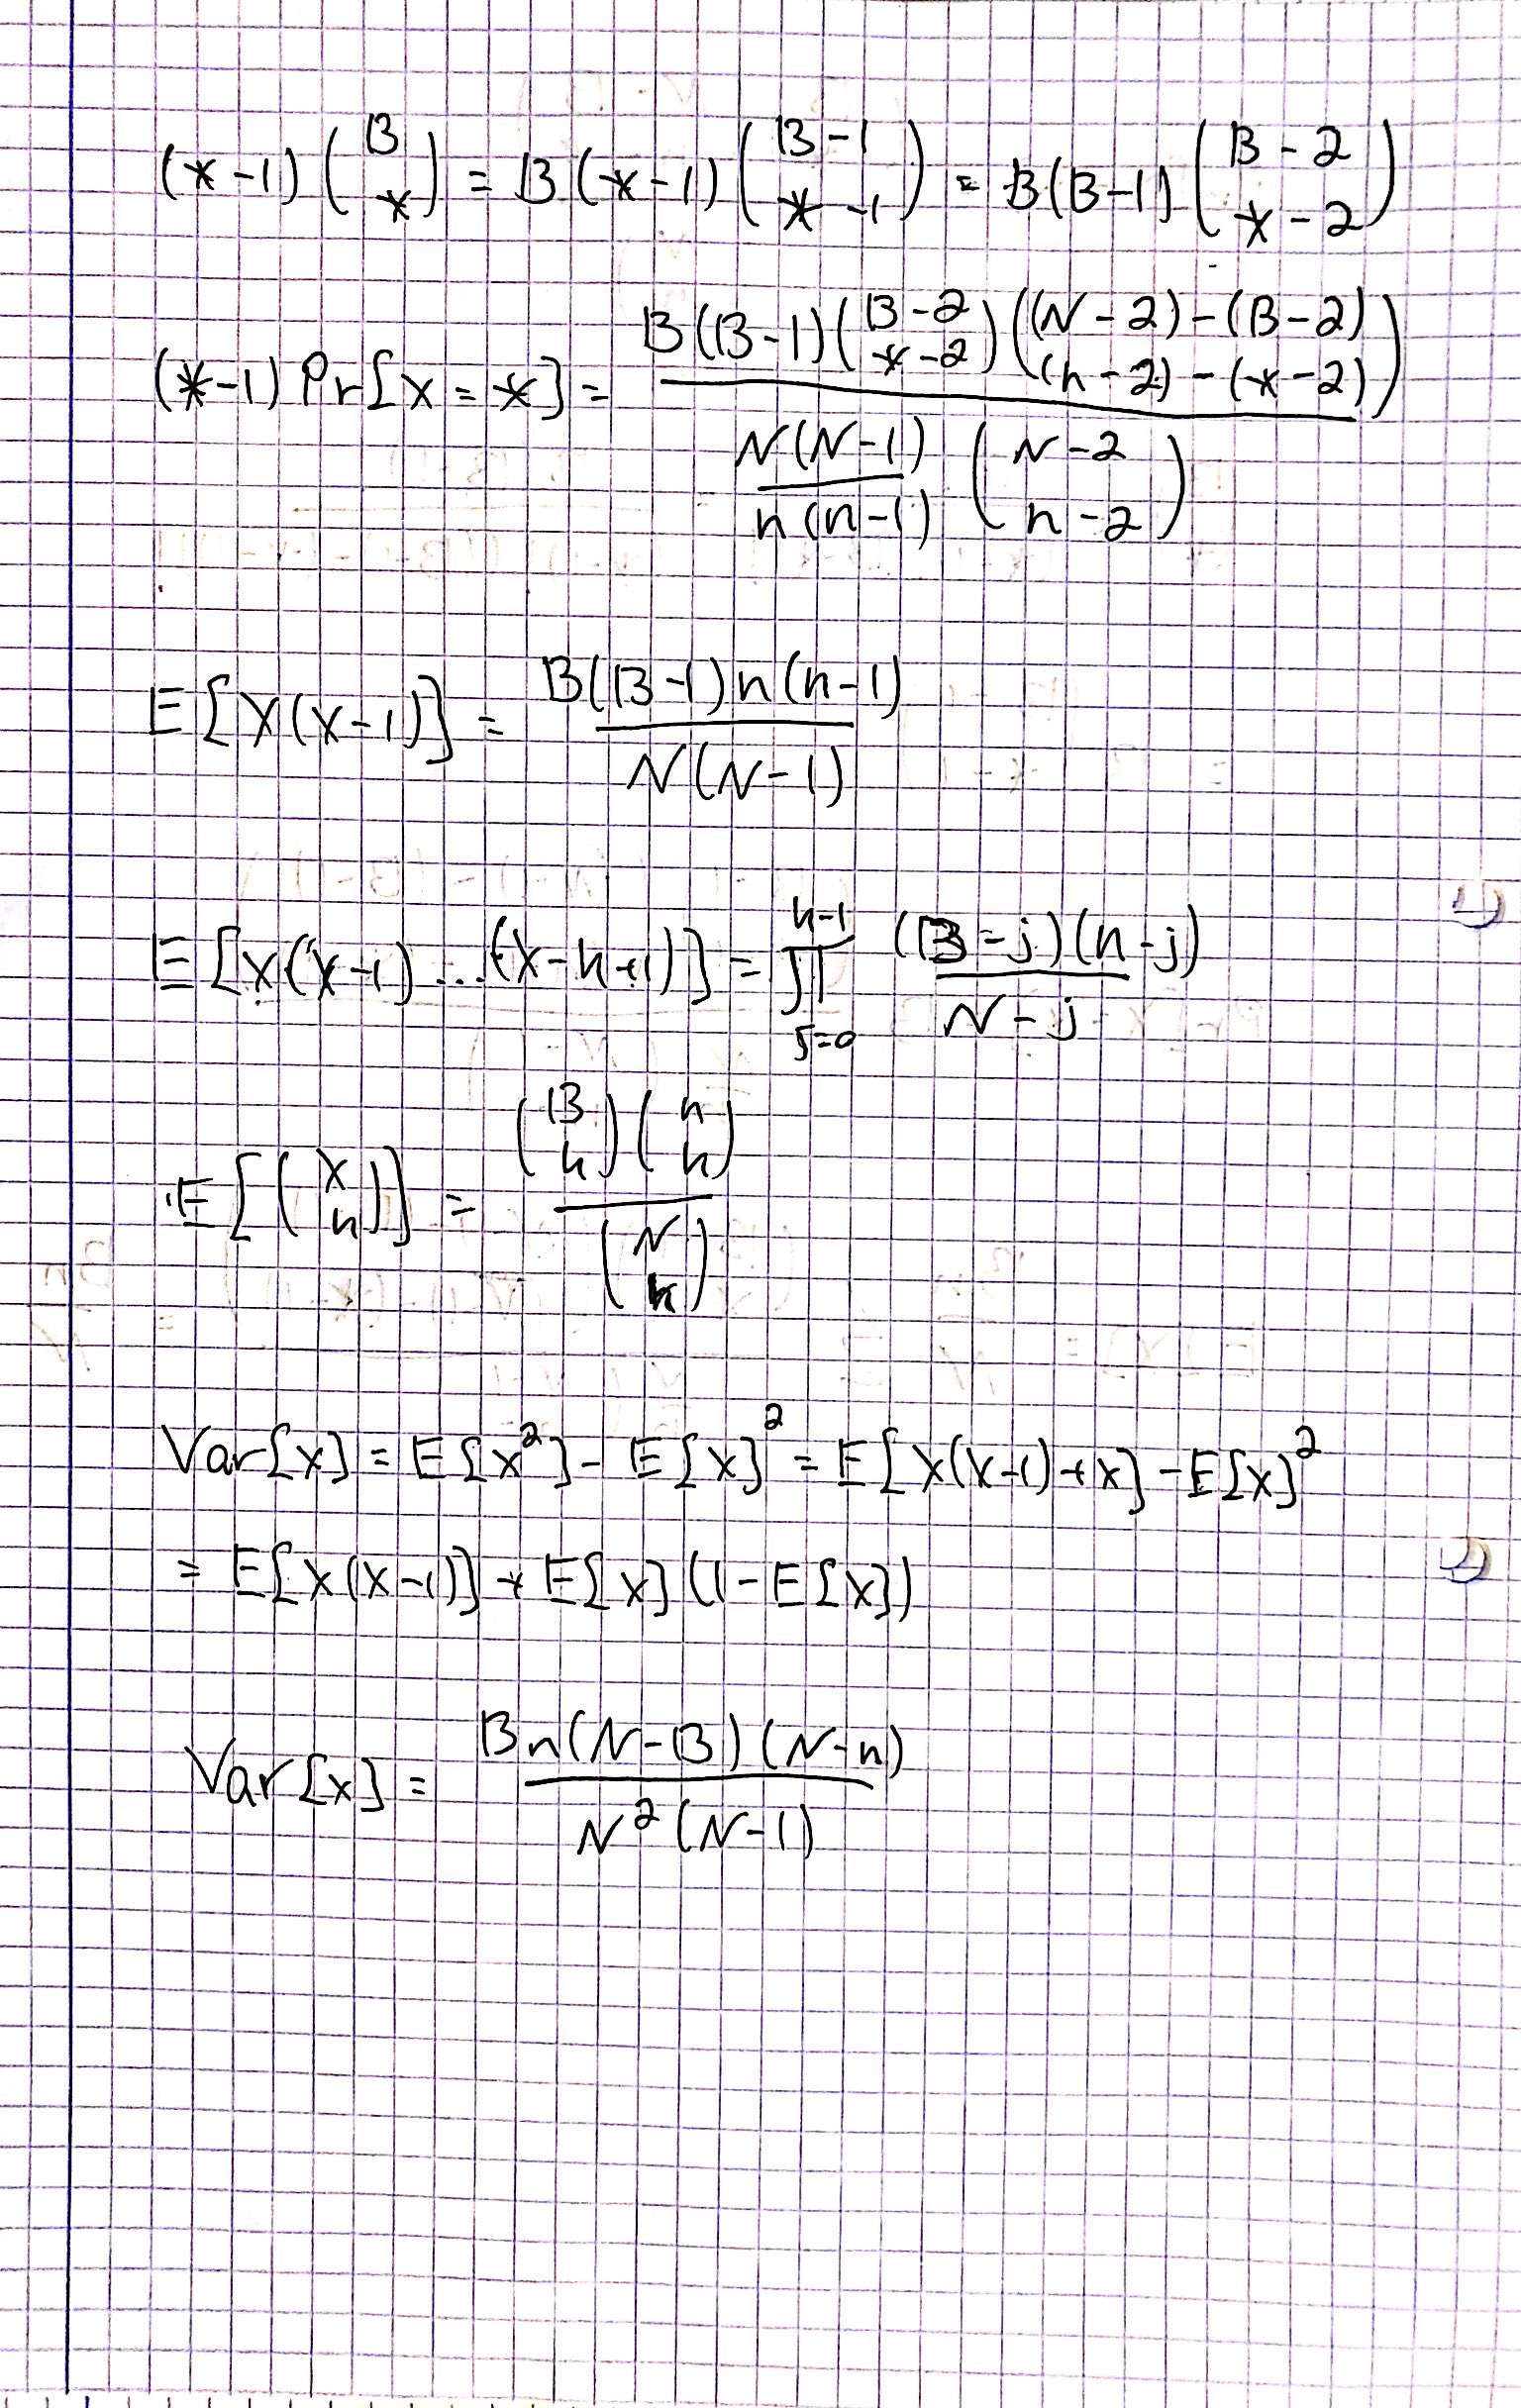 (x-1) \binom{B}{x} = B(x-1) \binom{B-1}{x-1} = B(B-1) \binom{B-2}{x-2}
(x-1) Pr[X = x] = \frac{B(B-1) \binom{B-2}{x-2} \binom{(N-2)-(B-2)}{(n-2)-(x-2)}}{\frac{N(N-1)}{n(n-1)} \binom{N-2}{n-2}}
E[X(X-1)] = \frac{B(B-1)n(n-1)}{N(N-1)}
E[X(X-1)...(X-k+1)] = \prod_{j=0}^{k-1} \frac{(B-j)(n-j)}{N-j}
E[\binom{X}{k}] = \frac{\binom{B}{k} \binom{n}{k}}{\binom{N}{k}}
Var[X] = E[X^2] - E[X]^2 = E[X(X-1)+X] - E[X]^2
= E[X(X-1)] + E[X](1-E[X])
Var[X] = \frac{Bn(N-B)(N-n)}{N^2(N-1)}